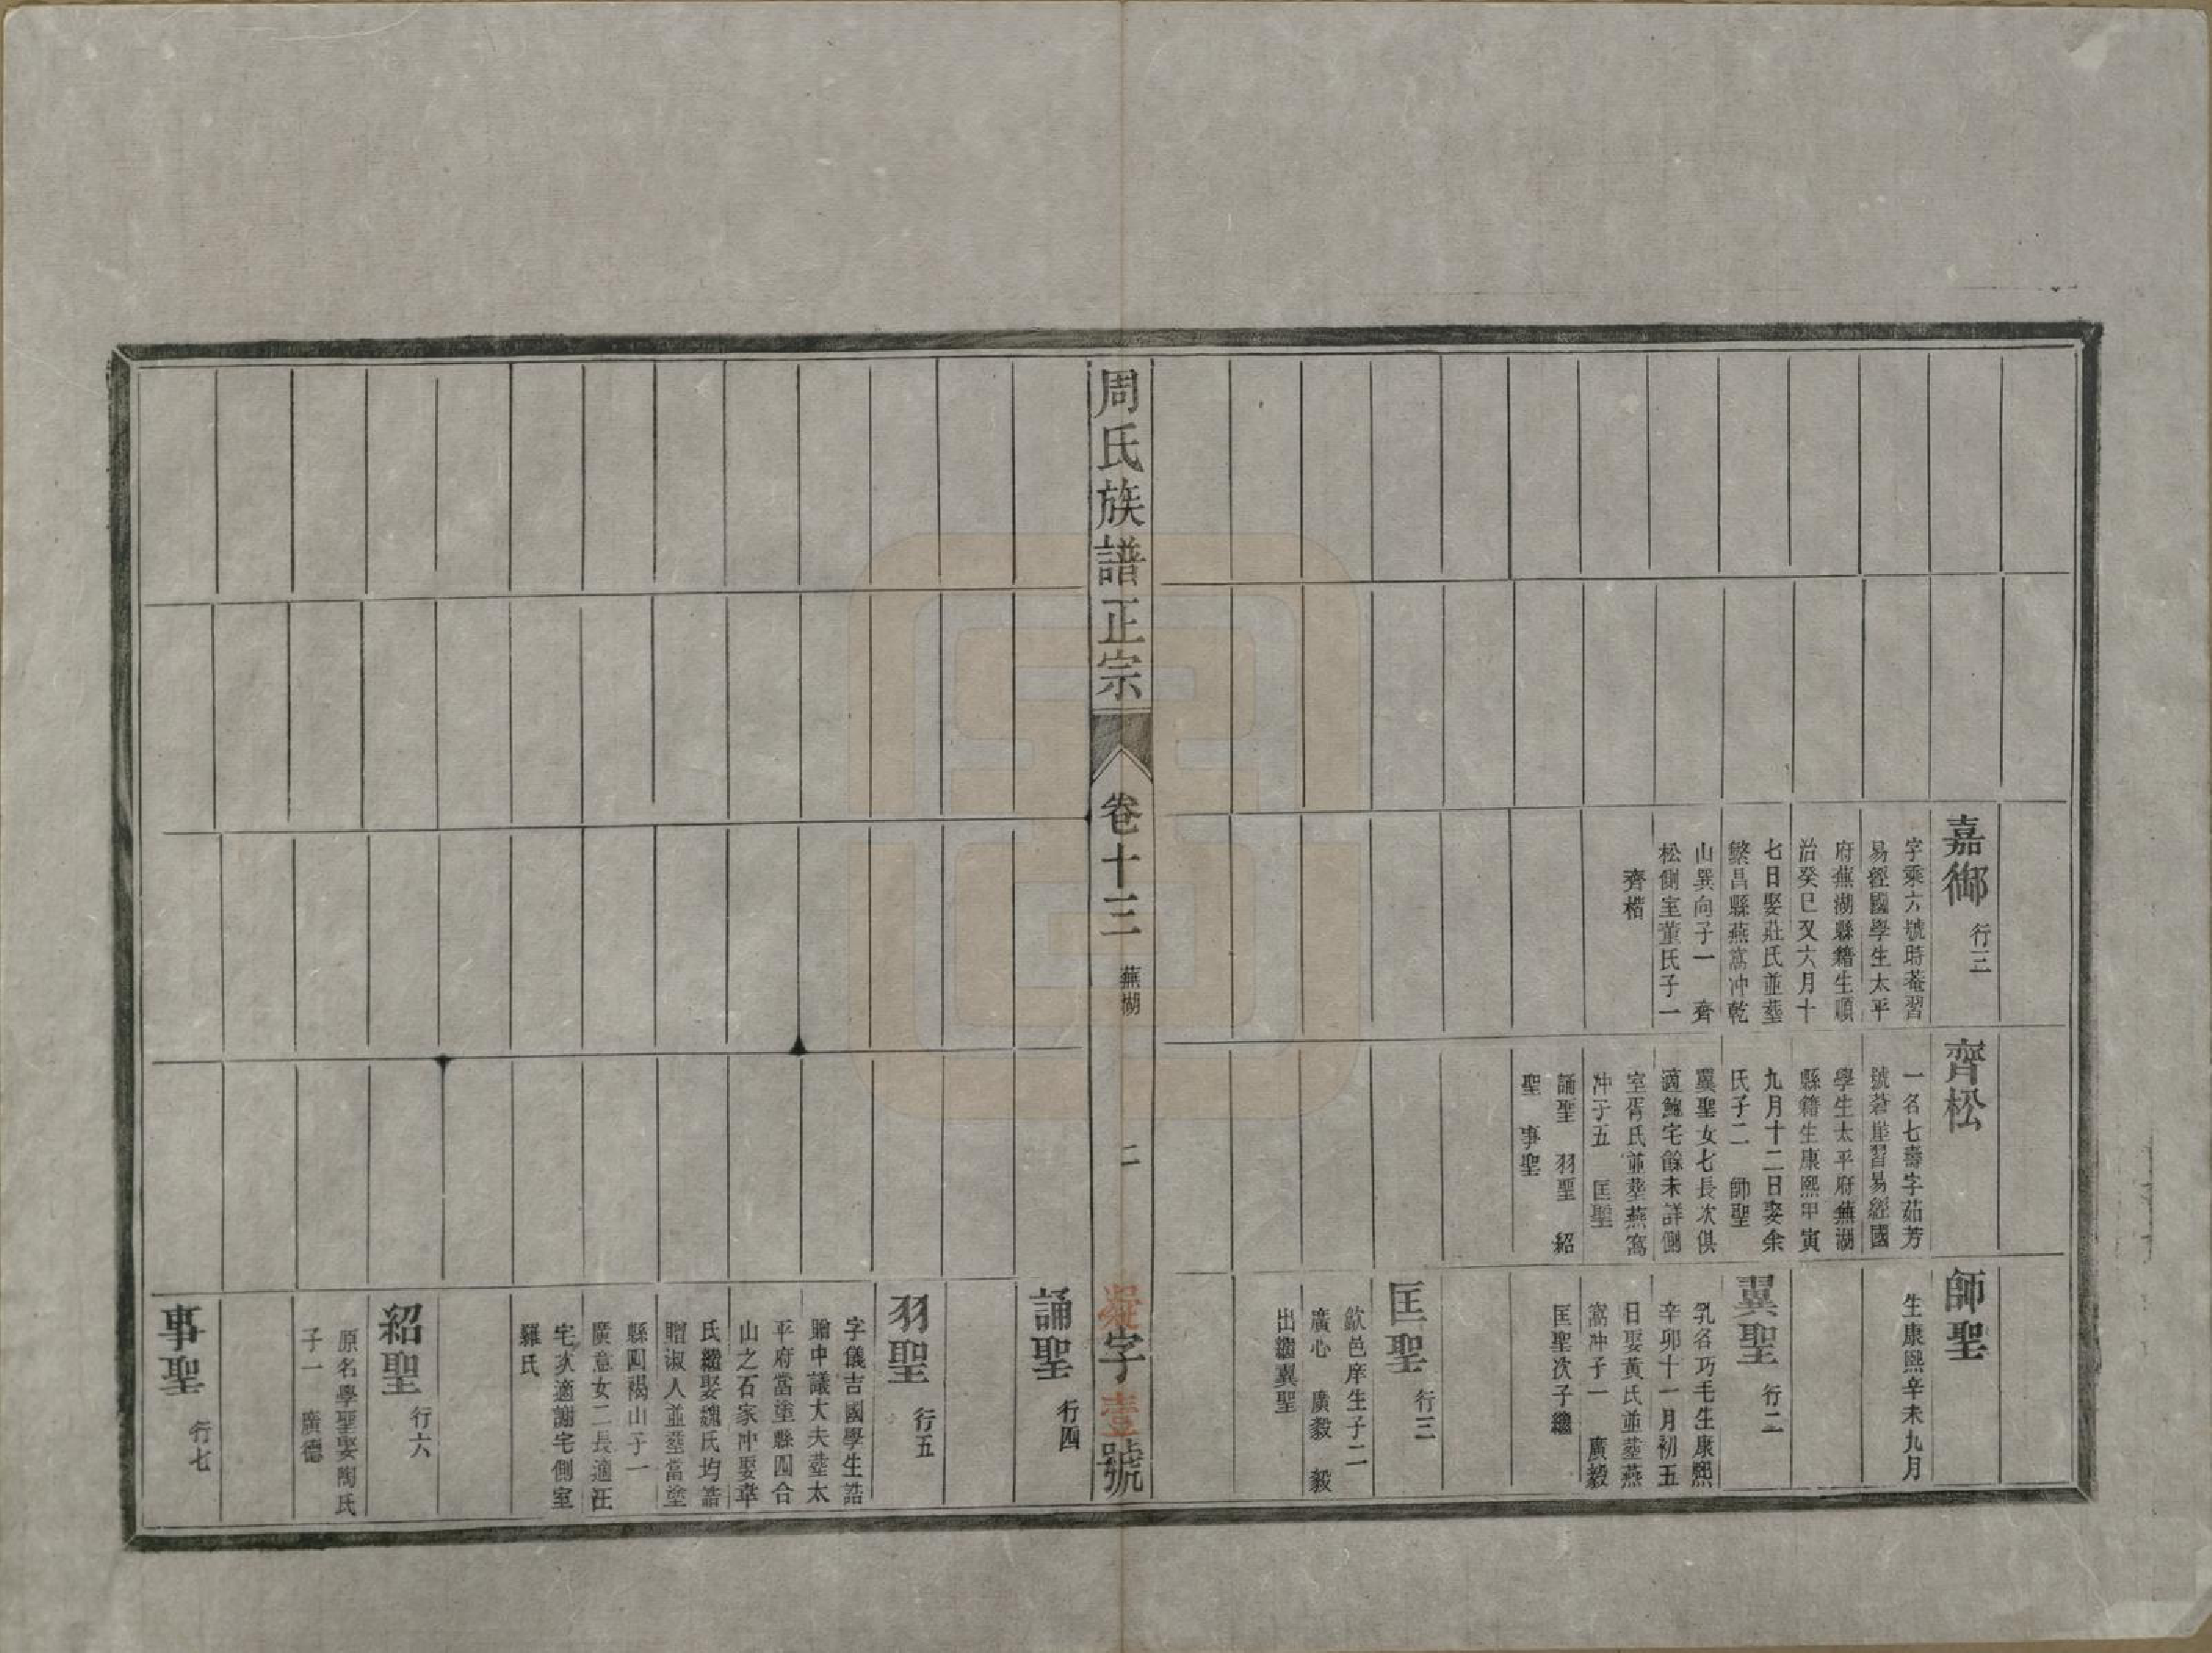 嘉御 行三
字乘六號時菴習
易經國學生太平
府蕪湖縣籍生順
治癸巳又六月十
七日娶莊氏並塟
繁昌縣燕窩冲乾
山巽向子一 齊
松側室董氏子一
齊楷
齊松
一名七壽字茹芳
號蒼崖習易經國
學生太平府蕪湖
縣籍生康熙甲寅
九月十二日娶余
氏子二 師聖
翼聖女七長次俱
適鮑宅餘未詳側
室胥氏並塟燕窩
冲子五 匡聖
誦聖 羽聖 紹
聖 事聖
師聖
生康熙辛未九月
翼聖 行二
乳名巧毛生康熙
辛卯十一月初五
日娶黃氏並塟燕
窩冲子一 廣毅
匡聖次子繼
匡聖 行三
歙邑庠生子二
廣心 廣毅 毅
出繼翼聖
周氏族譜正宗
卷十三 蕪湖
二
字壹號
誦聖 行四
羽聖 行五
字儀吉國學生誥
贈中議大夫塟太
平府當塗縣四合
山之石家冲娶章
氏繼娶魏氏均誥
贈淑人並塟當塗
縣四褐山子一
廣意女二長適汪
宅次適謝宅側室
羅氏
紹聖 行六
原名學聖娶陶氏
子一 廣德
事聖 行七